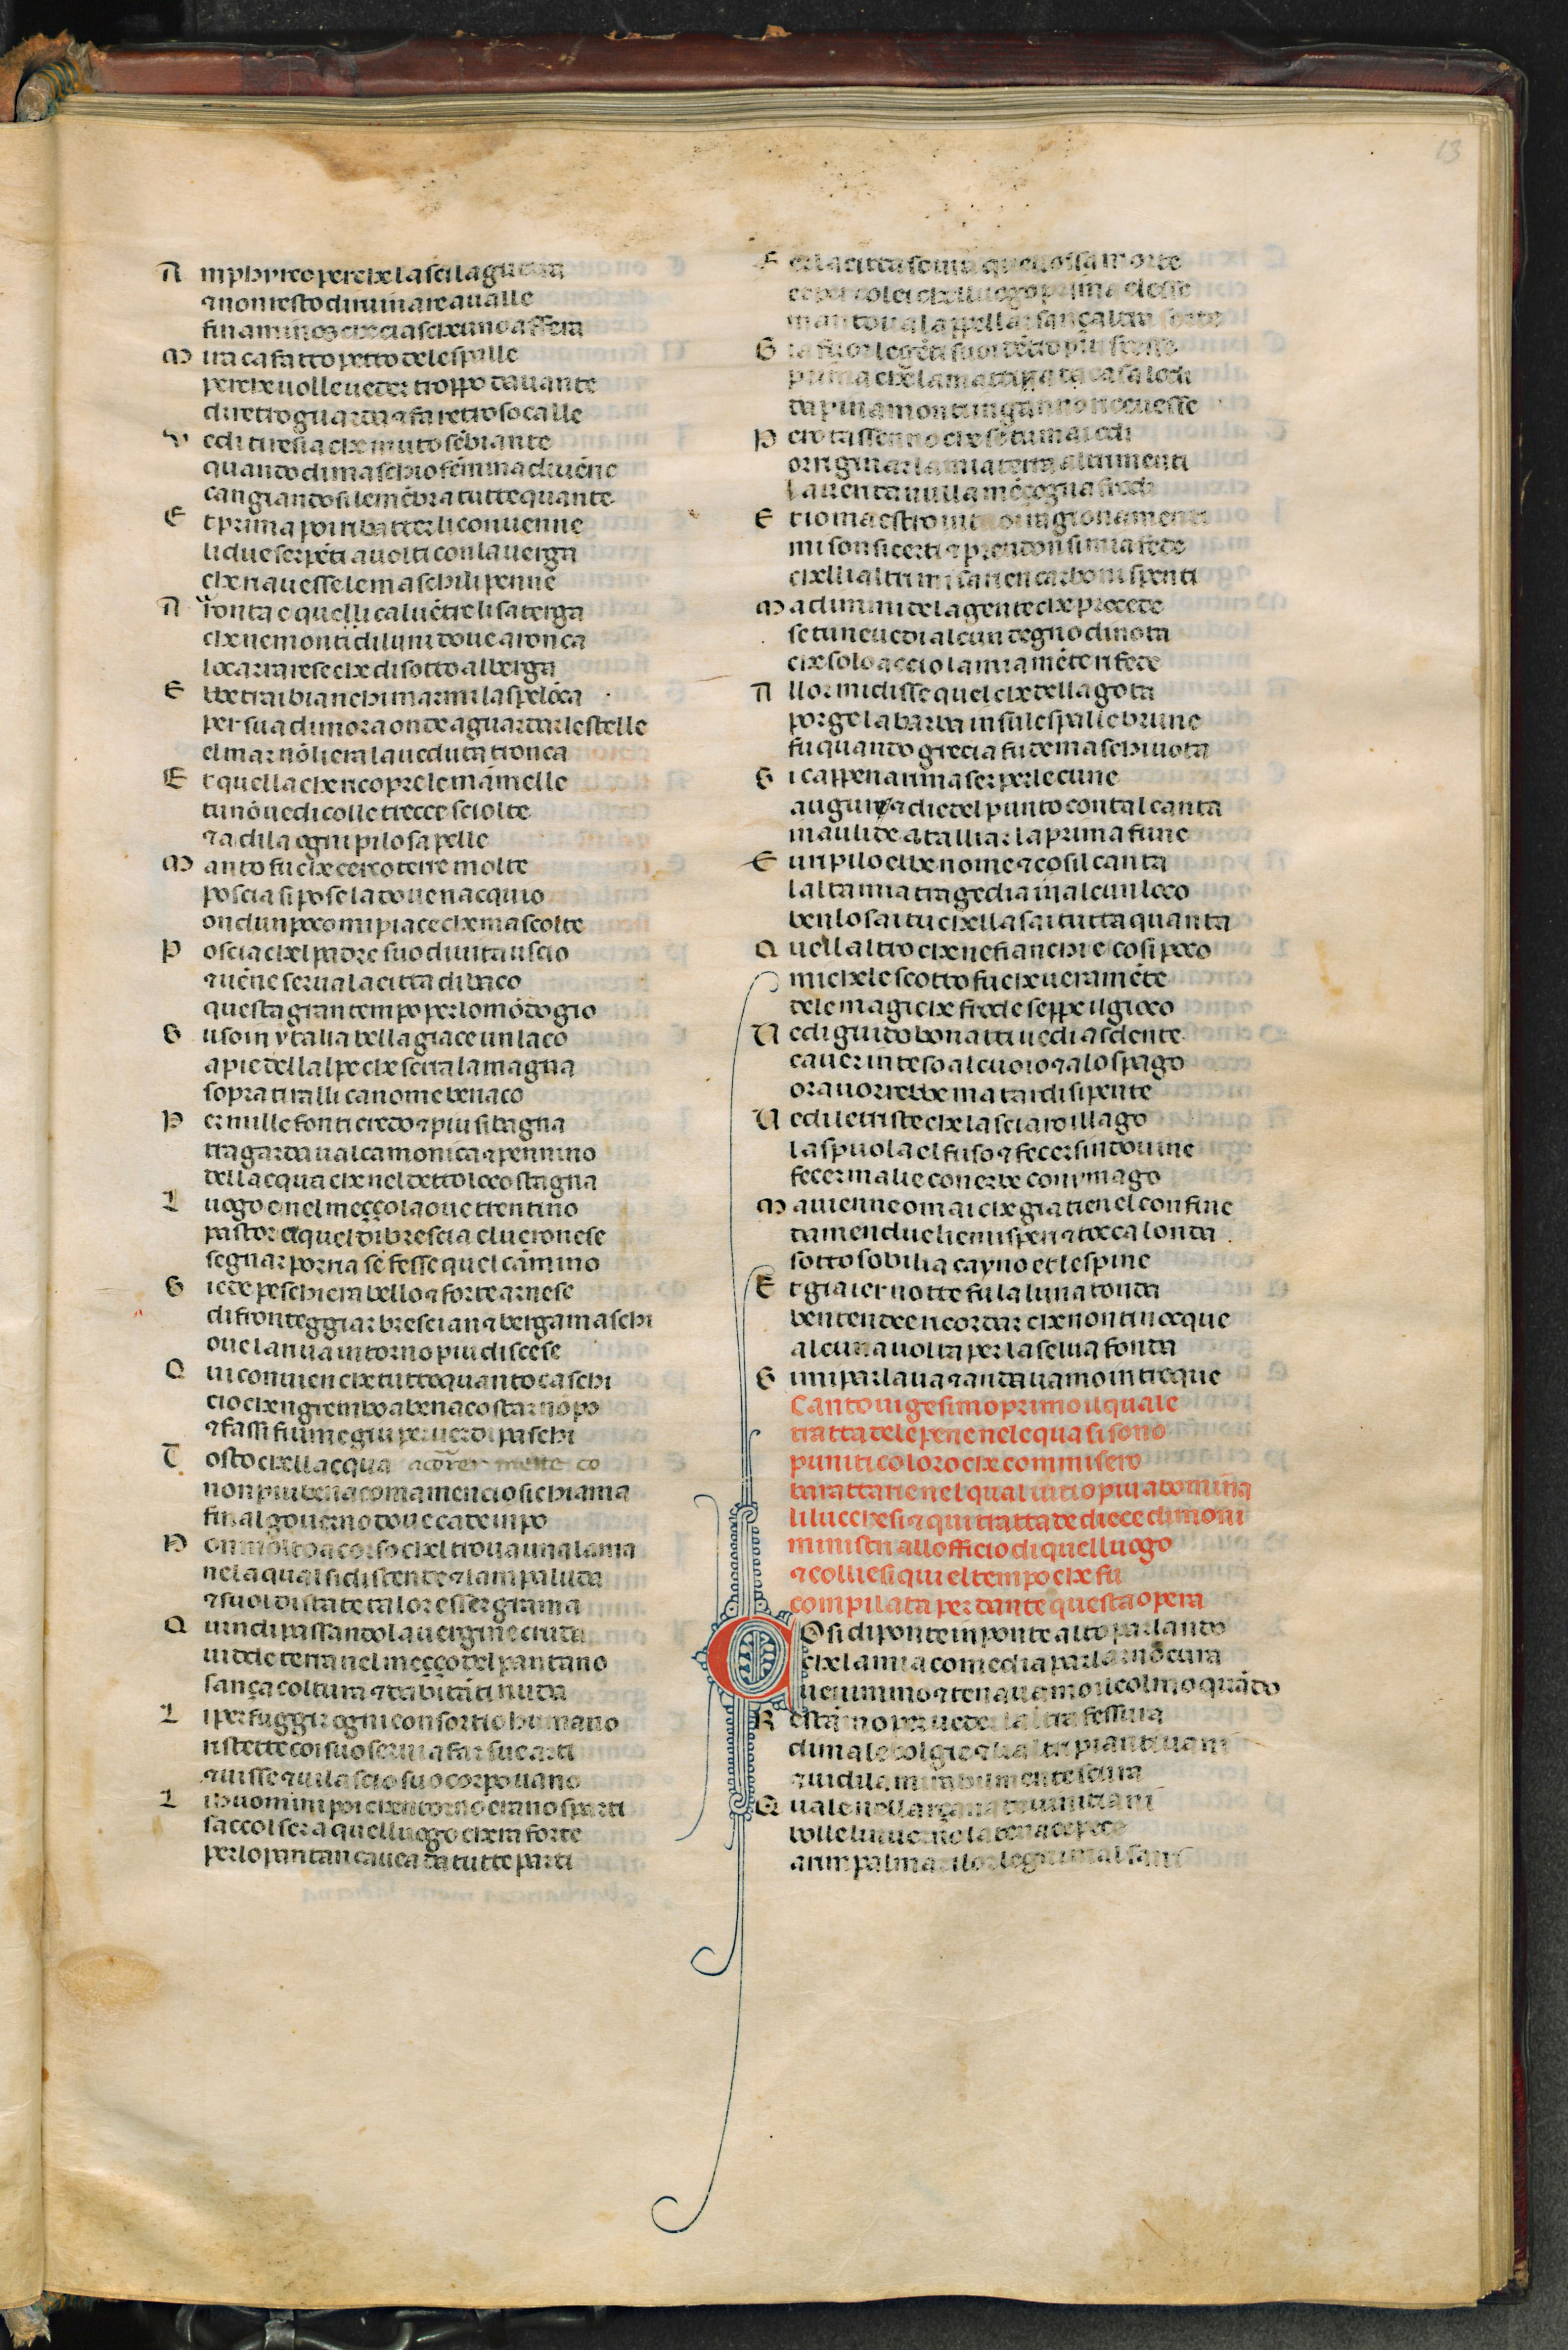 13
A mphyreo perche lasci la guerra
⁊ non resto di ruinare a valle
fin a minos che ciaschuno afferra
M ira ca fatto petto dele spalle
perche volle veder troppo davante
diretro guarda ⁊ fa retroso calle
V edi tiresia che muto sēbiante
quando di maschio fēmina divēne
cangiandosi le mēbra tutte quante
E t prima poi ribatter li convenne
li due serpēti avolti con la verga
che riavesse le maschili penne
A ronta e quelli cal vētre li saterga
che ne monti di luni dove a ronca
lo cararese che disotto alberga
E bbe tra i bianchi marmi la spelōca
per sua dimora onde a guardar le stelle
el mar nō li era la veduta tronca
E t quella che ricopre le mamelle
tu nō vedi colle trecce sciolte
⁊ a di la ogni pilosa pelle
M anto fu che cerco terre molte
poscia si pose la dove nacquio
ondun poco mi piace che mascolte
P oscia chel padre suo di vita uscio
⁊ vēne serva la citta di baco
questa gran tempo per lo mōdo gio
S uso in ytalia bella giace un laco
a pie dellalpe che serra lamagna
sopra tiralli ca nome benaco
P er mille fonti credo ⁊ piu si bagna
tra garda val camonica ⁊ pennino
dellacqua che nel detto loco stagna
L uogo e nel meçço la ove trentino
pastor e quel di brescia el veronese
segnar poria sē fesse quel camino
S iede peschiera bello ⁊ forte arnese
di fronteggiar bresciani ⁊ bergamaschi
ove la riva intorno piu discese
Q ui convien che tutto quanto caschi
cio chen grembo a benaco star nō po
⁊ fassi fiume giu per verdi paschi
T osto che llacqua a correr mette co
non piu benaco ma mencio si chiama
fin al governo dove cade in po
N on molto a corso chel trova una lama
nela qual si distende ⁊ lampaluda
⁊ suol di state talor esser grama
Q uindi passando la vergine cruda
vide terra nel meçço del pantano
sança coltura ⁊ dabitāti nuda
L i per fuggir ogni consortio humano
ristette coi suo servi a far sue arti
⁊ visse ⁊ vi lascio suo corpo vano
L i huomini poi chentorno erano sparti
saccolser a quel luogo chera forte
per lo pantan cavea da tutte parti
F er la citta sovra quellossa morte
e per colei chel luogo prima elesse
mantova lappellar sançaltra sorte
G ia fuor le gēti suoi dētro piu spesse
prima che la mattia da casalodi
da pinamonte inganno ricevesse
P ero tassenno che se tu mai odi
originar la mia terra altrimenti
la verita nulla mēçogna frodi
E t io maestro i tuoi ragionamenti
mi son si certi ⁊ prendon si mia fede
che lli altri mi sarien carboni spenti
M a dimmi dela gente che procede
se tu ne vedi alcun degno di nota
che solo accio la mia mēte rifede
A llor mi disse quel che della gota
porge la barba in sule spalle brune
fu quando grecia fu de maschi vota
S i cappena rimaser per le cune
augure ⁊ diede l punto con calcanta
in aulide a talliar la prima fune
E uripilo ebbe nome ⁊ cosi l canta
lalta mia tragedia in alcun loco
ben lo sai tu che lla sai tutta quanta
Q uellaltro che ne fianchi e cosi poco
michele scotto fu che veramēte
dele magiche frode seppe il gioco
V edi guido bonatti vedi asdente
caver inteso al cuoio ⁊ alo spago
ora vorrebbe ma tardi si pente
V edi le triste che lasciaro illago
la spuola el fuso ⁊ fecersindovine
fecer malie con erbe con ymago
M a vienne omai che gia tien el confine
damendue liemisperi ⁊ tocca londa
sotto sobilia cayno et le spine
E t gia iernotte fu la luna tonda
ben ten dee ricordar che non ti nocque
alcuna volta per la selva fonda
S i mi parlava ⁊ andavamo introcque
Canto vigesimo primo il quale
tratta dele pene nele qua si sono
puniti coloro che commisero
barattarie nel qual vitio piu abomina
li lucchesi ⁊ qui tratta de diece dimoni
ministri allofficio di quel luogo
⁊ colliesi qui el tempo che fu
compilata per dante questa opera
COsi di ponte in ponte altro parlando
che la mia comedia parla nō cura
venimmo ⁊ tenavamo il colmo quādo
R estāmo per veder laltra fessura
di malebolgie ⁊ lialtri pianti vani
⁊ vidila mirabilmente scura
Q uale nellarçana de vinitiani
bolle linverno la tenace pece
a rimpalmar i lor legni mal sani